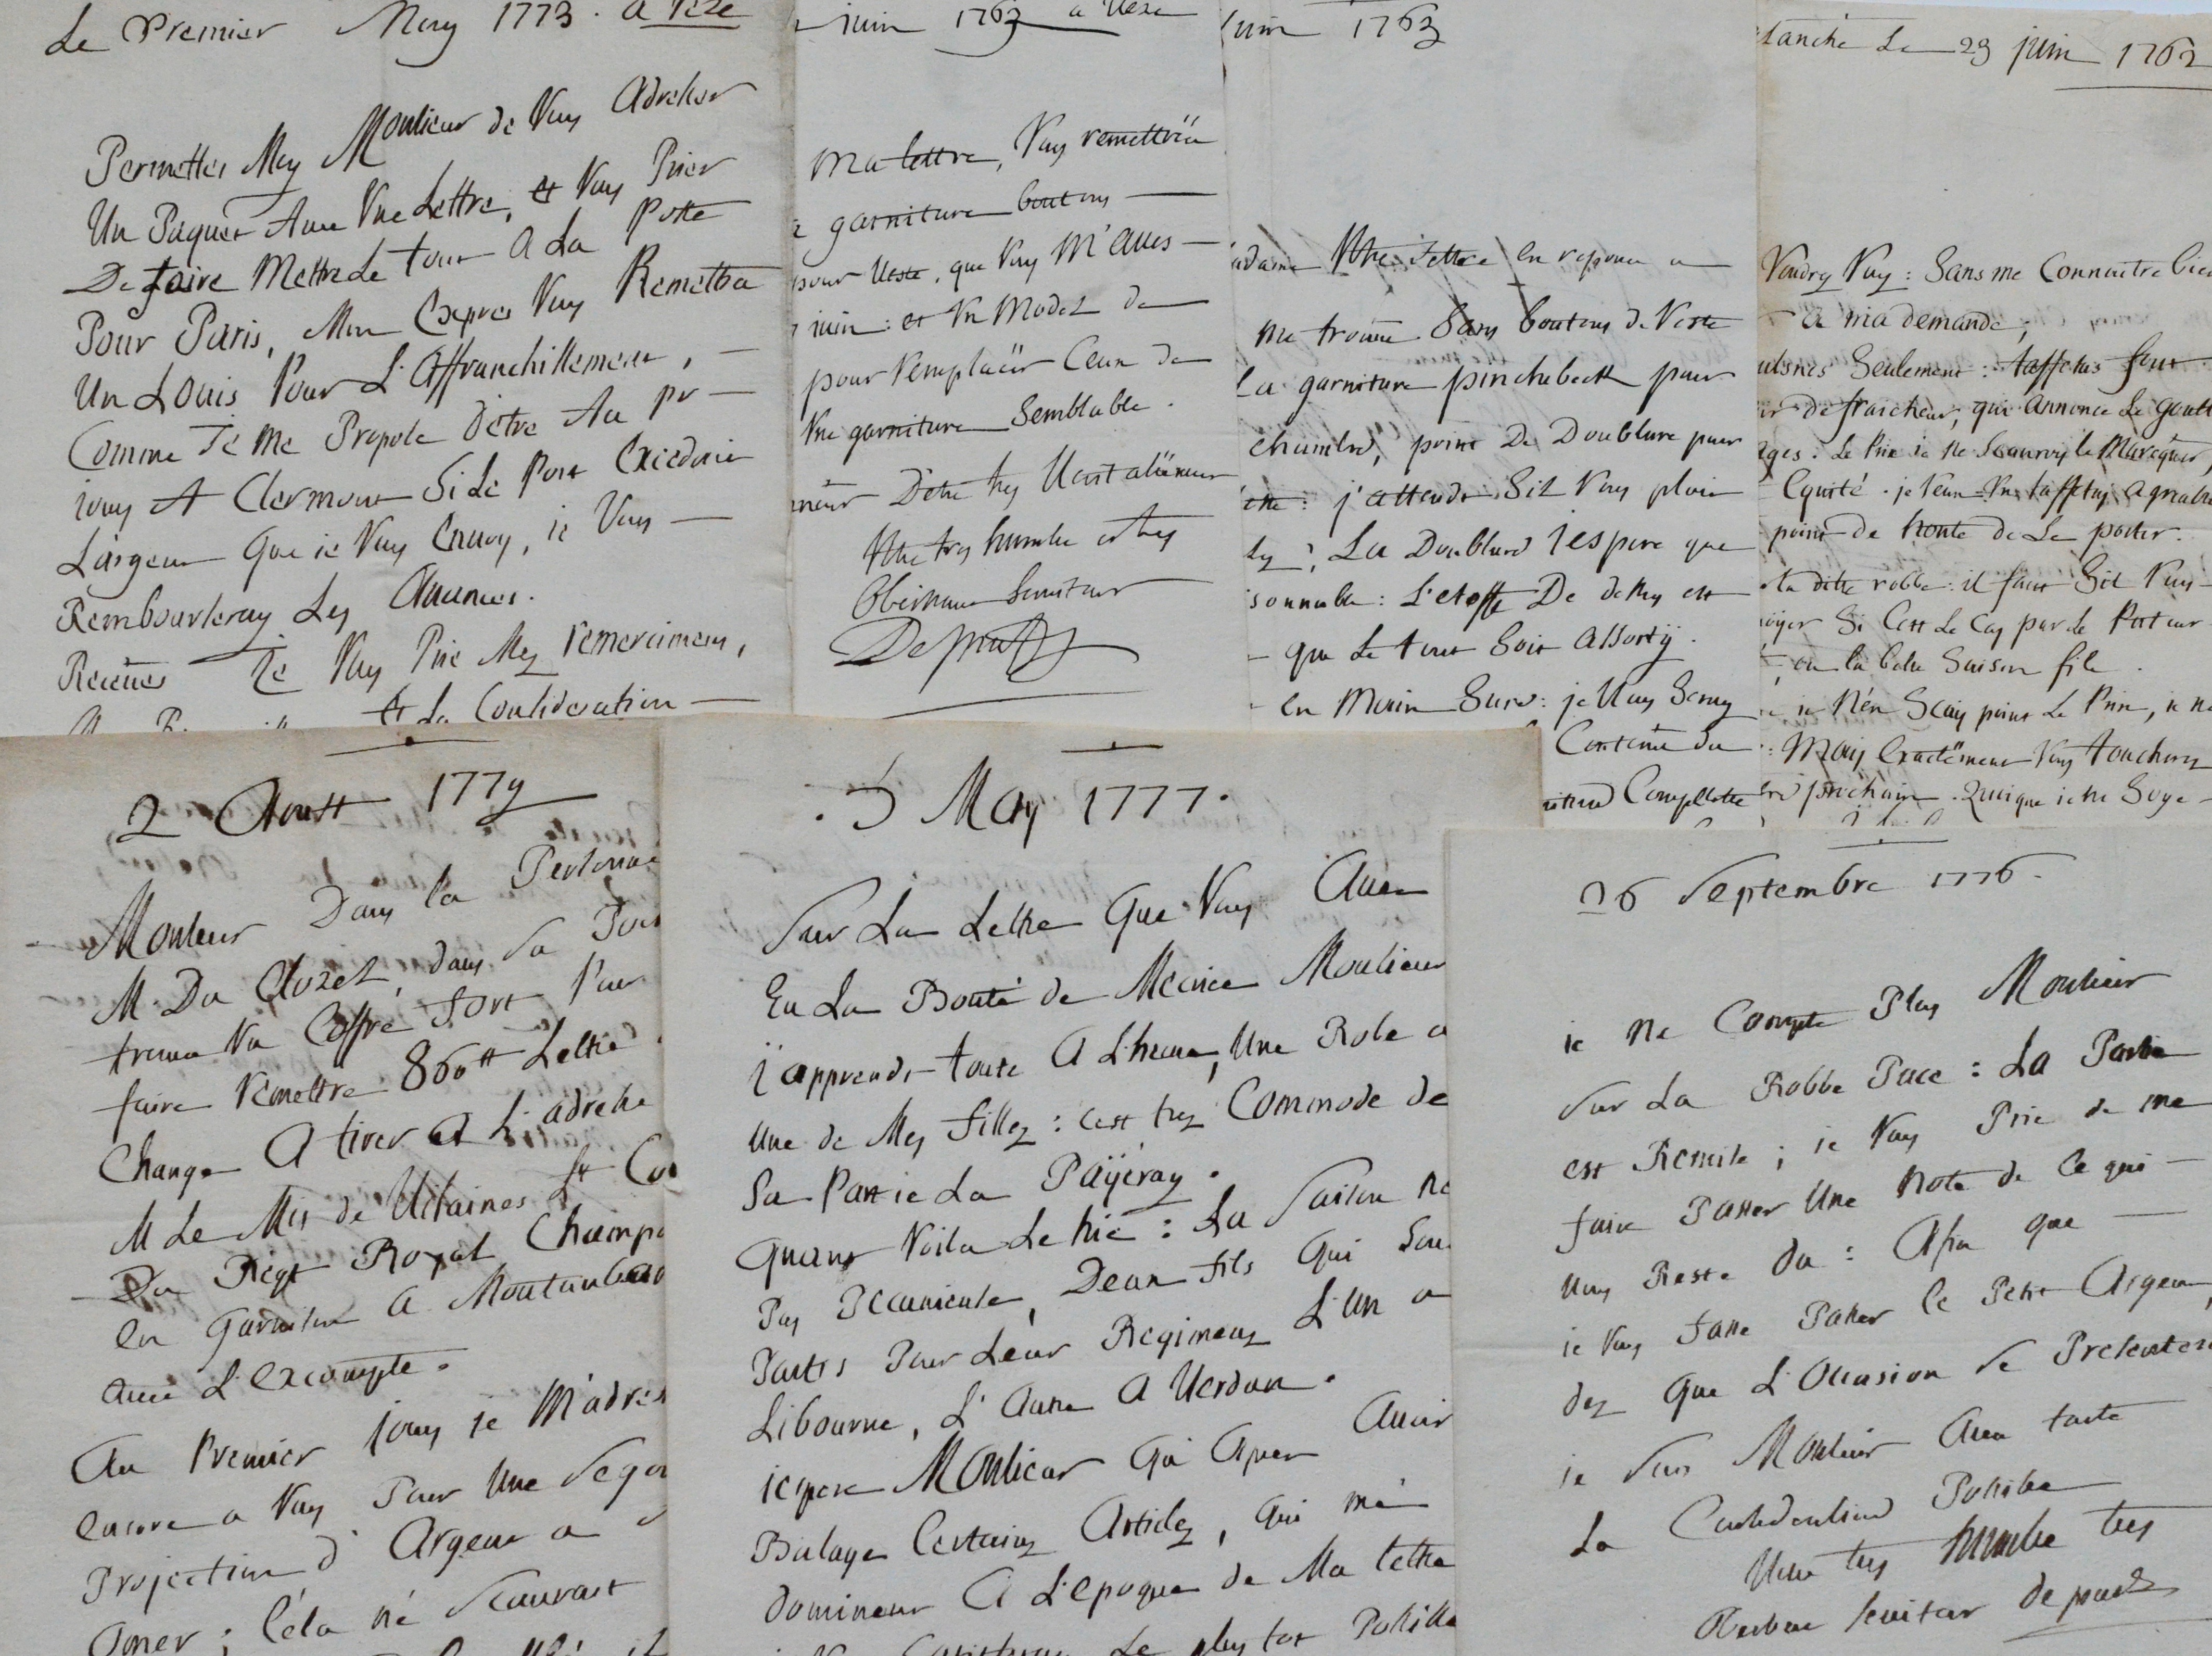 Le Premier May 1773. a
Permettés Moy Monsieur de Vous Adresser
Un Paquet Avec Une Lettre, et Vous Prier
De faire Mettre Le tout A La Poste
Pour Paris, Mon Exprès Vous Remettra
Un Louis Pour L'Affranchissement, —
Comme Je me Propose D'être Au pr —
jours A Clermont Si Le Port Excedoit
L'argent Que je Vous Envoy, je Vous —
Rembourseray Les Avances.
Recevés Je Vous Prie Mes remercimens,
Et La Consideration —
juin 1763 a
Ma lettre, Vous remettrés
garniture boutons —
pour Veste, que Vous M'avés —
juin : et Un Model de
pour remplacér Ceux de
Une garniture Semblable.
D'être très
Vôtre très humble et très
Obeissant Serviteur
Depradt
juin 1763
Vôtre Lettre En reponse a
me trouve Sans boutons De Veste
La garniture pinchebeck pour
chambre, point De Doublure pour
j'attends Sil Vous plait
La Doublure J'espere que
sonnable : L'etoffe De dessus est
— que Le tout Soit Assorty.
— En Main Sure : je Vous Seray
Contenu du
Complette
Le 23 juin 1762
Voudrez Vous : Sans me Connoitre bien
a ma demande,
Seulement : taffetas
de fraicheur, qui Annonce Le Goutt
Le Prix je ne Scauroy Le Marquer,
Equité. je Veux Un taffetas Agreable
point De honte De Le porter.
la dite robbe : il faut Sil Vous —
Si Cest Le Cas par Le Porteur
ou la belle Saison file.
je N'en Scay point Le Prix, je ne
: Mais Exactement Vous toucherez
prochain. Quoique je ne Soye —
2 Aoust 1779
Monsieur Dans la Personne
M. Du Clozel, dans Sa
trouva Un Coffre fort Pour
faire remettre 860tt Lettre
Change A tirer A L'adresse
M Le Mis de
Du Regt Royal Champ
En Garnison A Montauban
Avec L'Excompte.
Au Premier jours je M'adres
Encore a Vous Pour Une Segon
Projection d'Argent a
; Cela ne Scauroit
. 5 May 1777.
Sur La Lettre Que Vous Avez
Eu La Bonté de M'ecrire Monsieur
J'apprends toute A L'heure, Une Robe a
Une de Mes filles : cest très Commode de
Sa Partie La Payeray.
Quant Voila Le hic : La Saison ne
Pas Pecunieuse, Deux fils Qui Sont
Partis Pour Leur Regiment L'un a
Libourne, L'Autre A Verdun.
jespere Monsieur Qu'Après Avoir
Balayé Certains Articles, Qui me
dominent A L'epoque de Ma lettre
Le plus tot Possible
26 Septembre 1776.
je Ne Compte Plus Monsieur
Sur La Robbe Puce : La Partie
est Remise ; je Vous Prie de me
faire Passer Une Note de Ce qui —
Vous Reste Du : Afin que —
je Vous fasse Passer Ce Petit Argent,
dez Que L'Occasion Se Presentera
je Suis Monsieur Avec toute
La Consideration Possible
Vôtre très humble très
Serviteur de pradt